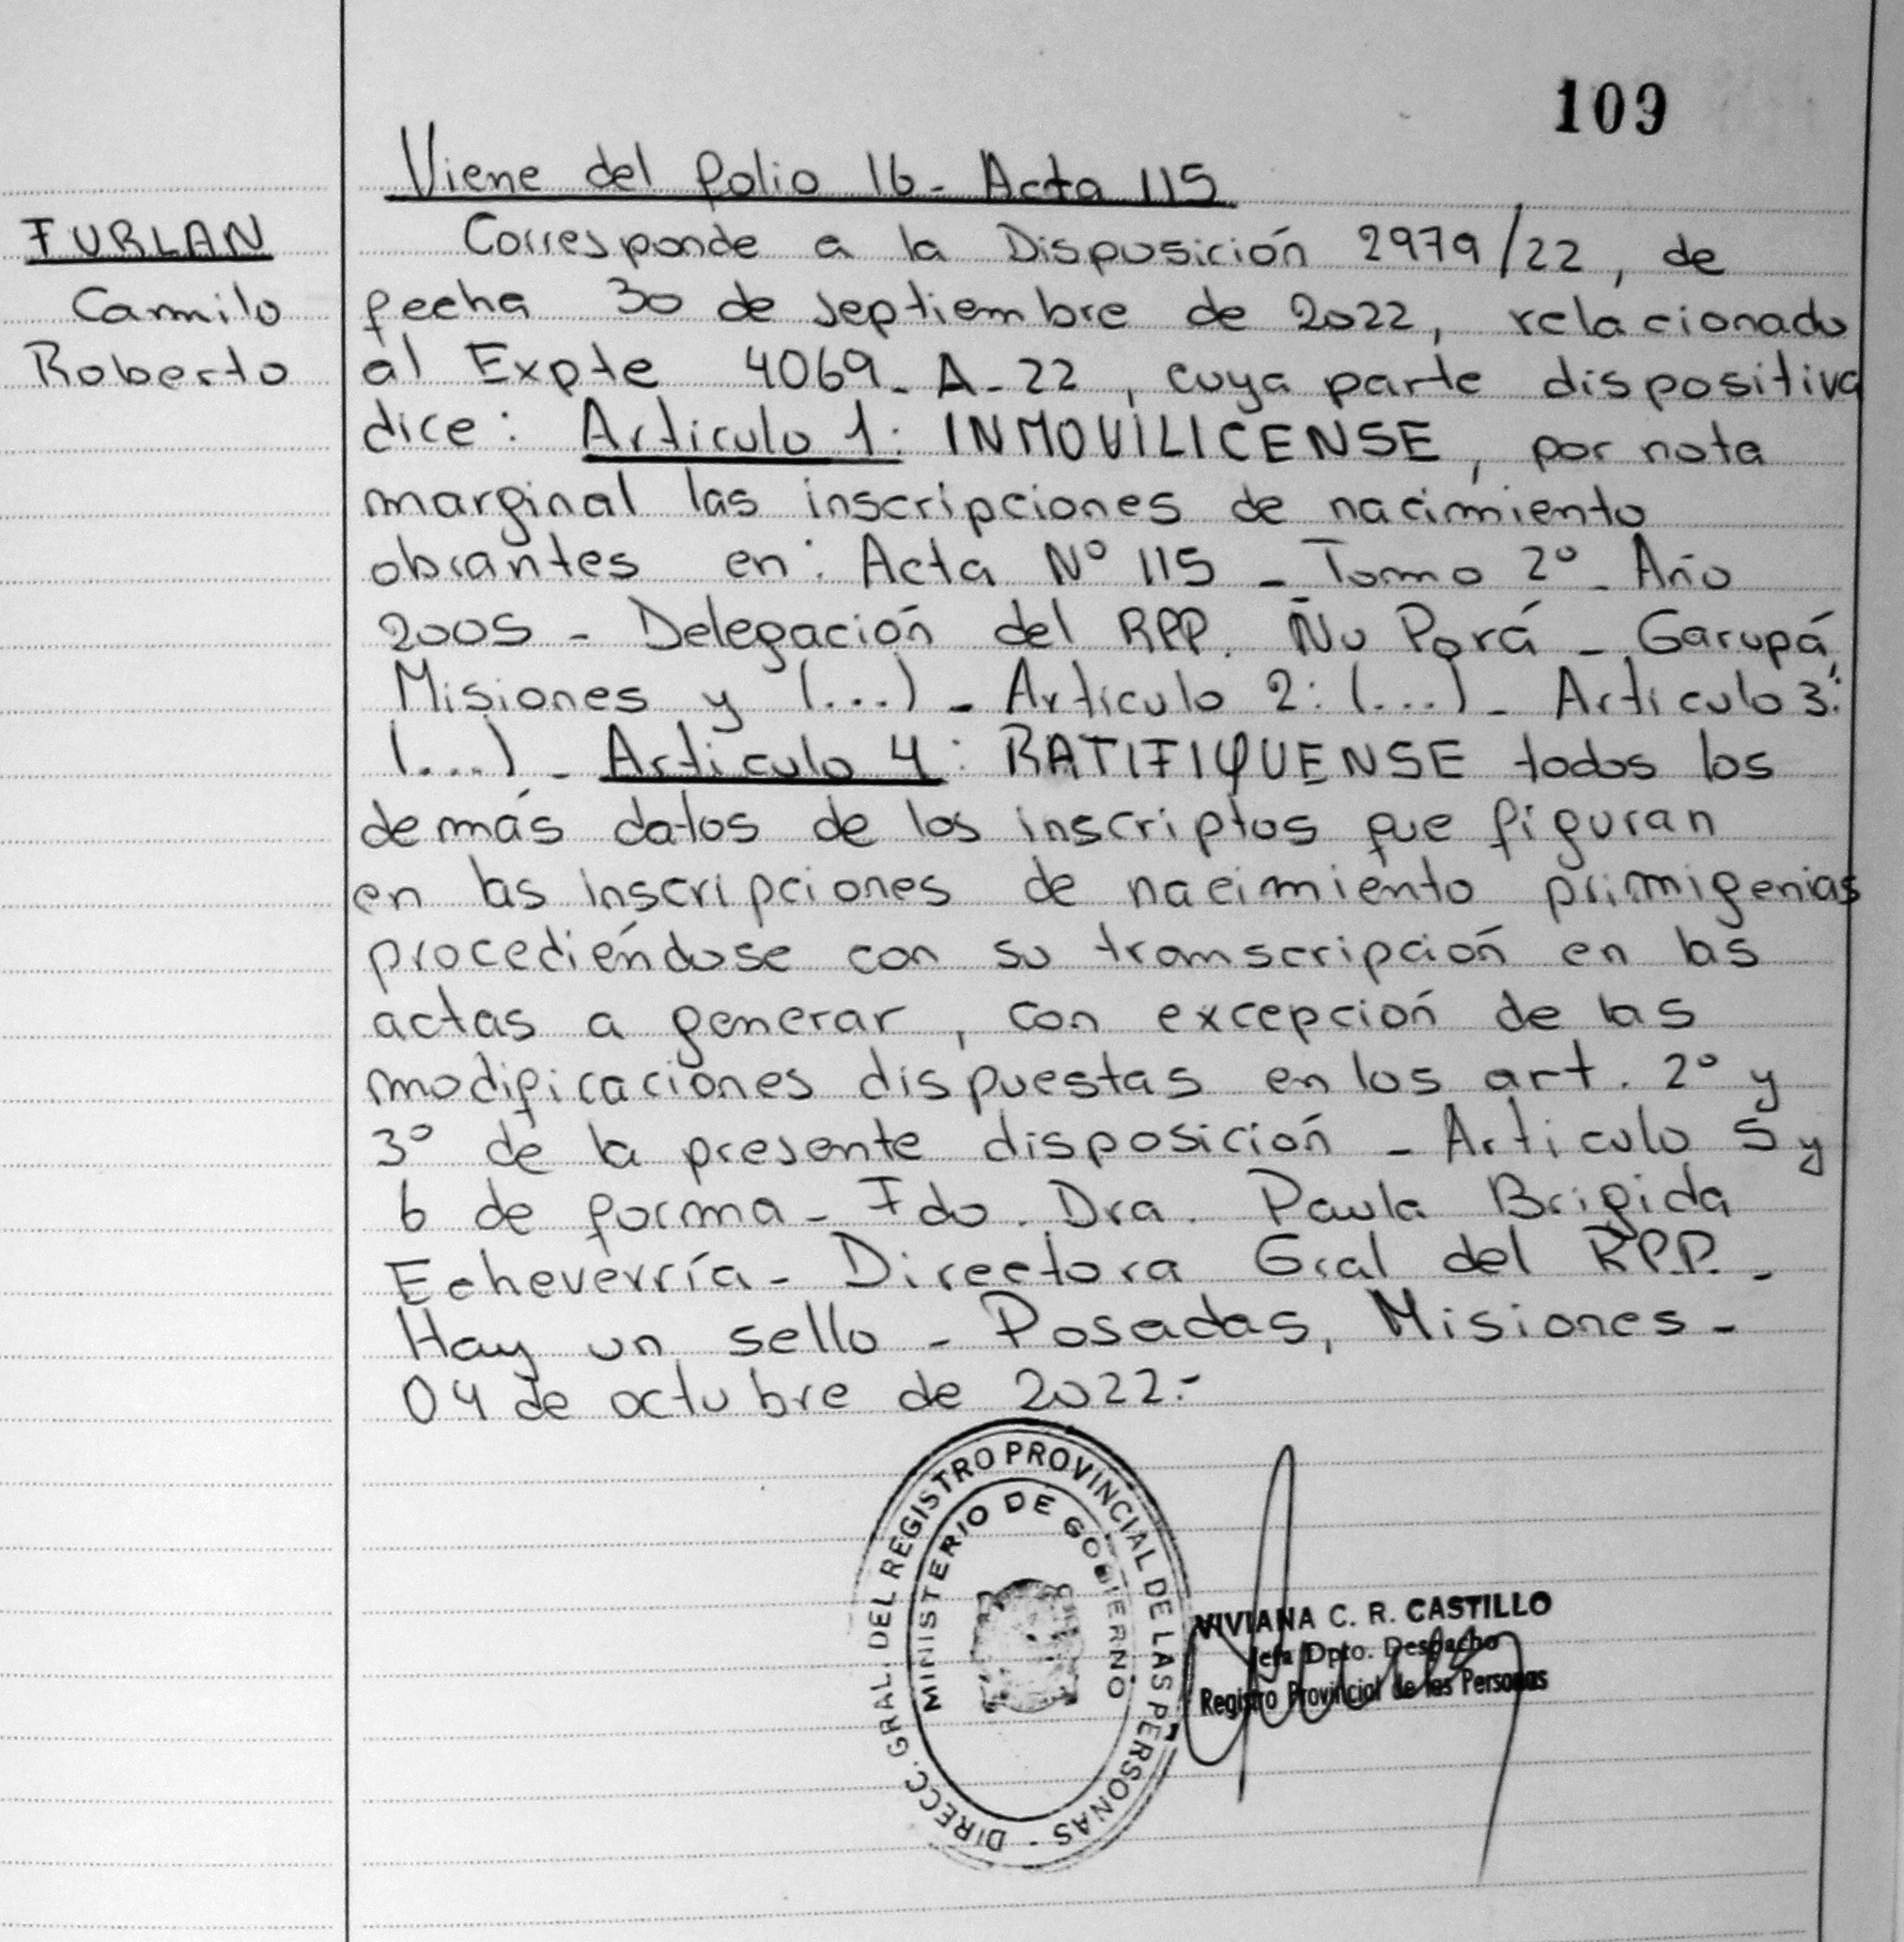 109
Viene del folio 16- Acta 115
FURLAN
Camilo
Roberto
Corresponde a la Disposición 2979/22, de
fecha 30 de septiembre de 2022, relacionado
al Expte 4069-A-22, cuya parte dispositiva
dice: Articulo 1: INMOVILICENSE, por nota
marginal las inscripciones de nacimiento
obrantes en: Acta Nº 115 - Tomo 2º - Año
2005 - Delegación del RPP. Ñu Porá - Garupá
Misiones y (...) - Articulo 2: (...) - Articulo 3:
(...) - Articulo 4: RATIFIQUENSE todos los
demás datos de los inscriptos que figuran
en las inscripciones de nacimiento primigenias
procediéndose con su transcripción en las
actas a generar, con excepción de las
modificaciones dispuestas en los art. 2º y
3º de la presente disposición - Articulo 5 y
6 de forma - Fdo. Dra. Paula Brigida
Echeverría - Directora Gral del RPP. -
Hay un sello - Posadas, Misiones -
04 de octubre de 2022.-
DIRECC. GRAL. DEL REGISTRO PROVINCIAL DE LAS PERSONAS -
MINISTERIO DE GOBIERNO
VIVIANA C. R. CASTILLO
Jefa Dpto. Despacho
Registro Provincial de las Personas